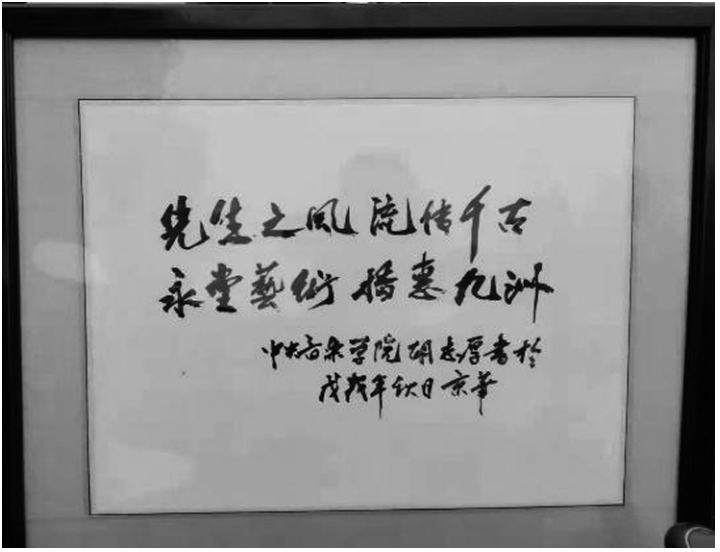 先生之风 流传千古
永堂藝術 播惠九洲
中央音乐学院胡志厚書於
戊戌年秋日京華